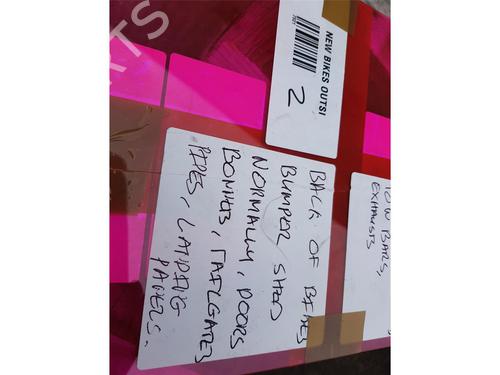 NEW BIKES OUTSI
2
BACK OF BIKES
BUMPER SHED
NORMALLY, DOORS
BONNETS, TAILGATES
PIPES, LADDING
PANELS.
TOW BARS,
EXHAUSTS